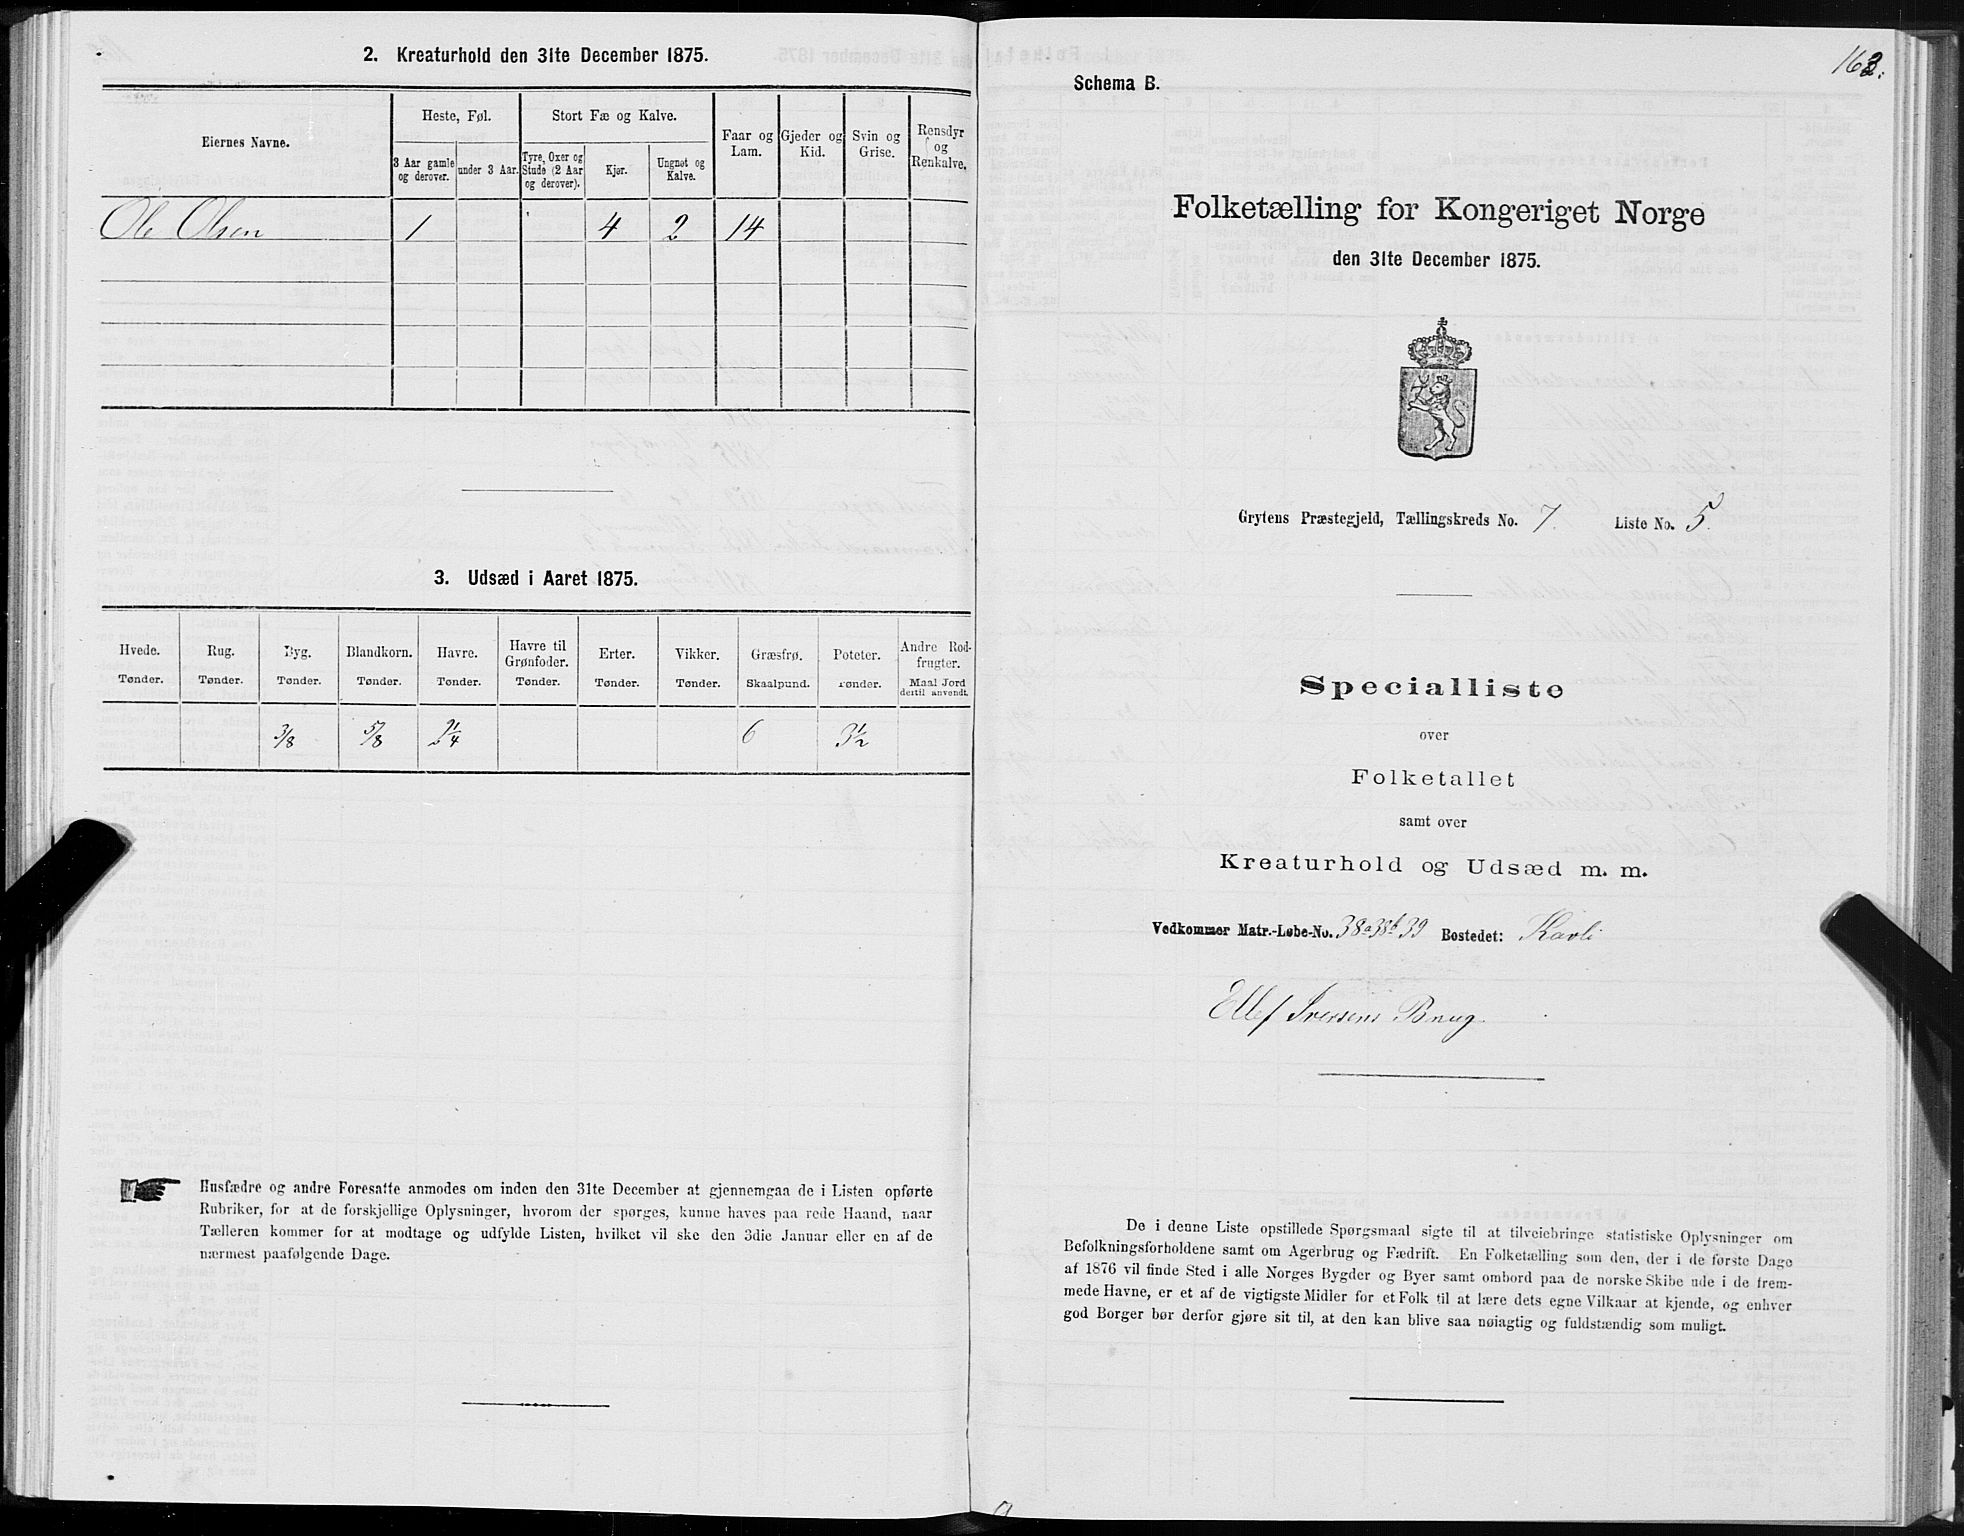 2. Kreaturhold den 31te December 1875.
Eiernes Navne.
Heste, Føl.
Stort Fæ og Kalve.
Faar og Lam.
Gjeder og Kid.
Svin og Grise.
Rensdyr og Renkalve.
3 Aar gamle og derover.
under 3 Aar.
Tyre, Oxer og Stude (2 Aar og derover).
Kjør.
Ungnøt og Kalve.
Ole Olsen 1 4 2 14
3. Udsæd i Aaret 1875.
Hvede. Rug. Byg. Blandkorn. Havre. Havre til Grønfoder. Erter. Vikker. Græsfrø. Poteter. Andre Rodfrugter.
Tønder. Tønder. Tønder. Tønder. Tønder. Tønder. Tønder. Tønder. Skaalpund. Tønder. Maal Jord dertil anvendt.
3/8 5/8 2 1/4 6 3 1/2
Husfædre og andre Foresatte anmodes om inden den 31te December at gjennemgaa de i Listen opførte
Rubriker, for at de forskjellige Oplysninger, hvorom der spørges, kunne haves paa rede Haand, naar
Tælleren kommer for at modtage og udfylde Listen, hvilket vil ske den 3die Januar eller en af de
nærmest paafølgende Dage.
Schema B.
Folketælling for Kongeriget Norge
den 31te December 1875.
Grytens Præstegjeld, Tællingskreds No. 7. Liste No. 5.
Specialliste
over
Folketallet
samt over
Kreaturhold og Udsæd m. m.
Vedkommer Matr.-Løbe-No. 38a 38b 39 Bostedet: Kavli
Ellef Iversens Brug
De i denne Liste opstillede Spørgsmaal sigte til at tilveiebringe statistiske Oplysninger om
Befolkningsforholdene samt om Agerbrug og Fædrift. En Folketælling som den, der i de første Dage
af 1876 vil finde Sted i alle Norges Bygder og Byer samt ombord paa de norske Skibe ude i de frem-
mede Havne, er et af de vigtigste Midler for et Folk til at lære dets egne Vilkaar at kjende, og enhver
god Borger bør derfor gjøre sit til, at den kan blive saa nøiagtig og fuldstændig som muligt.